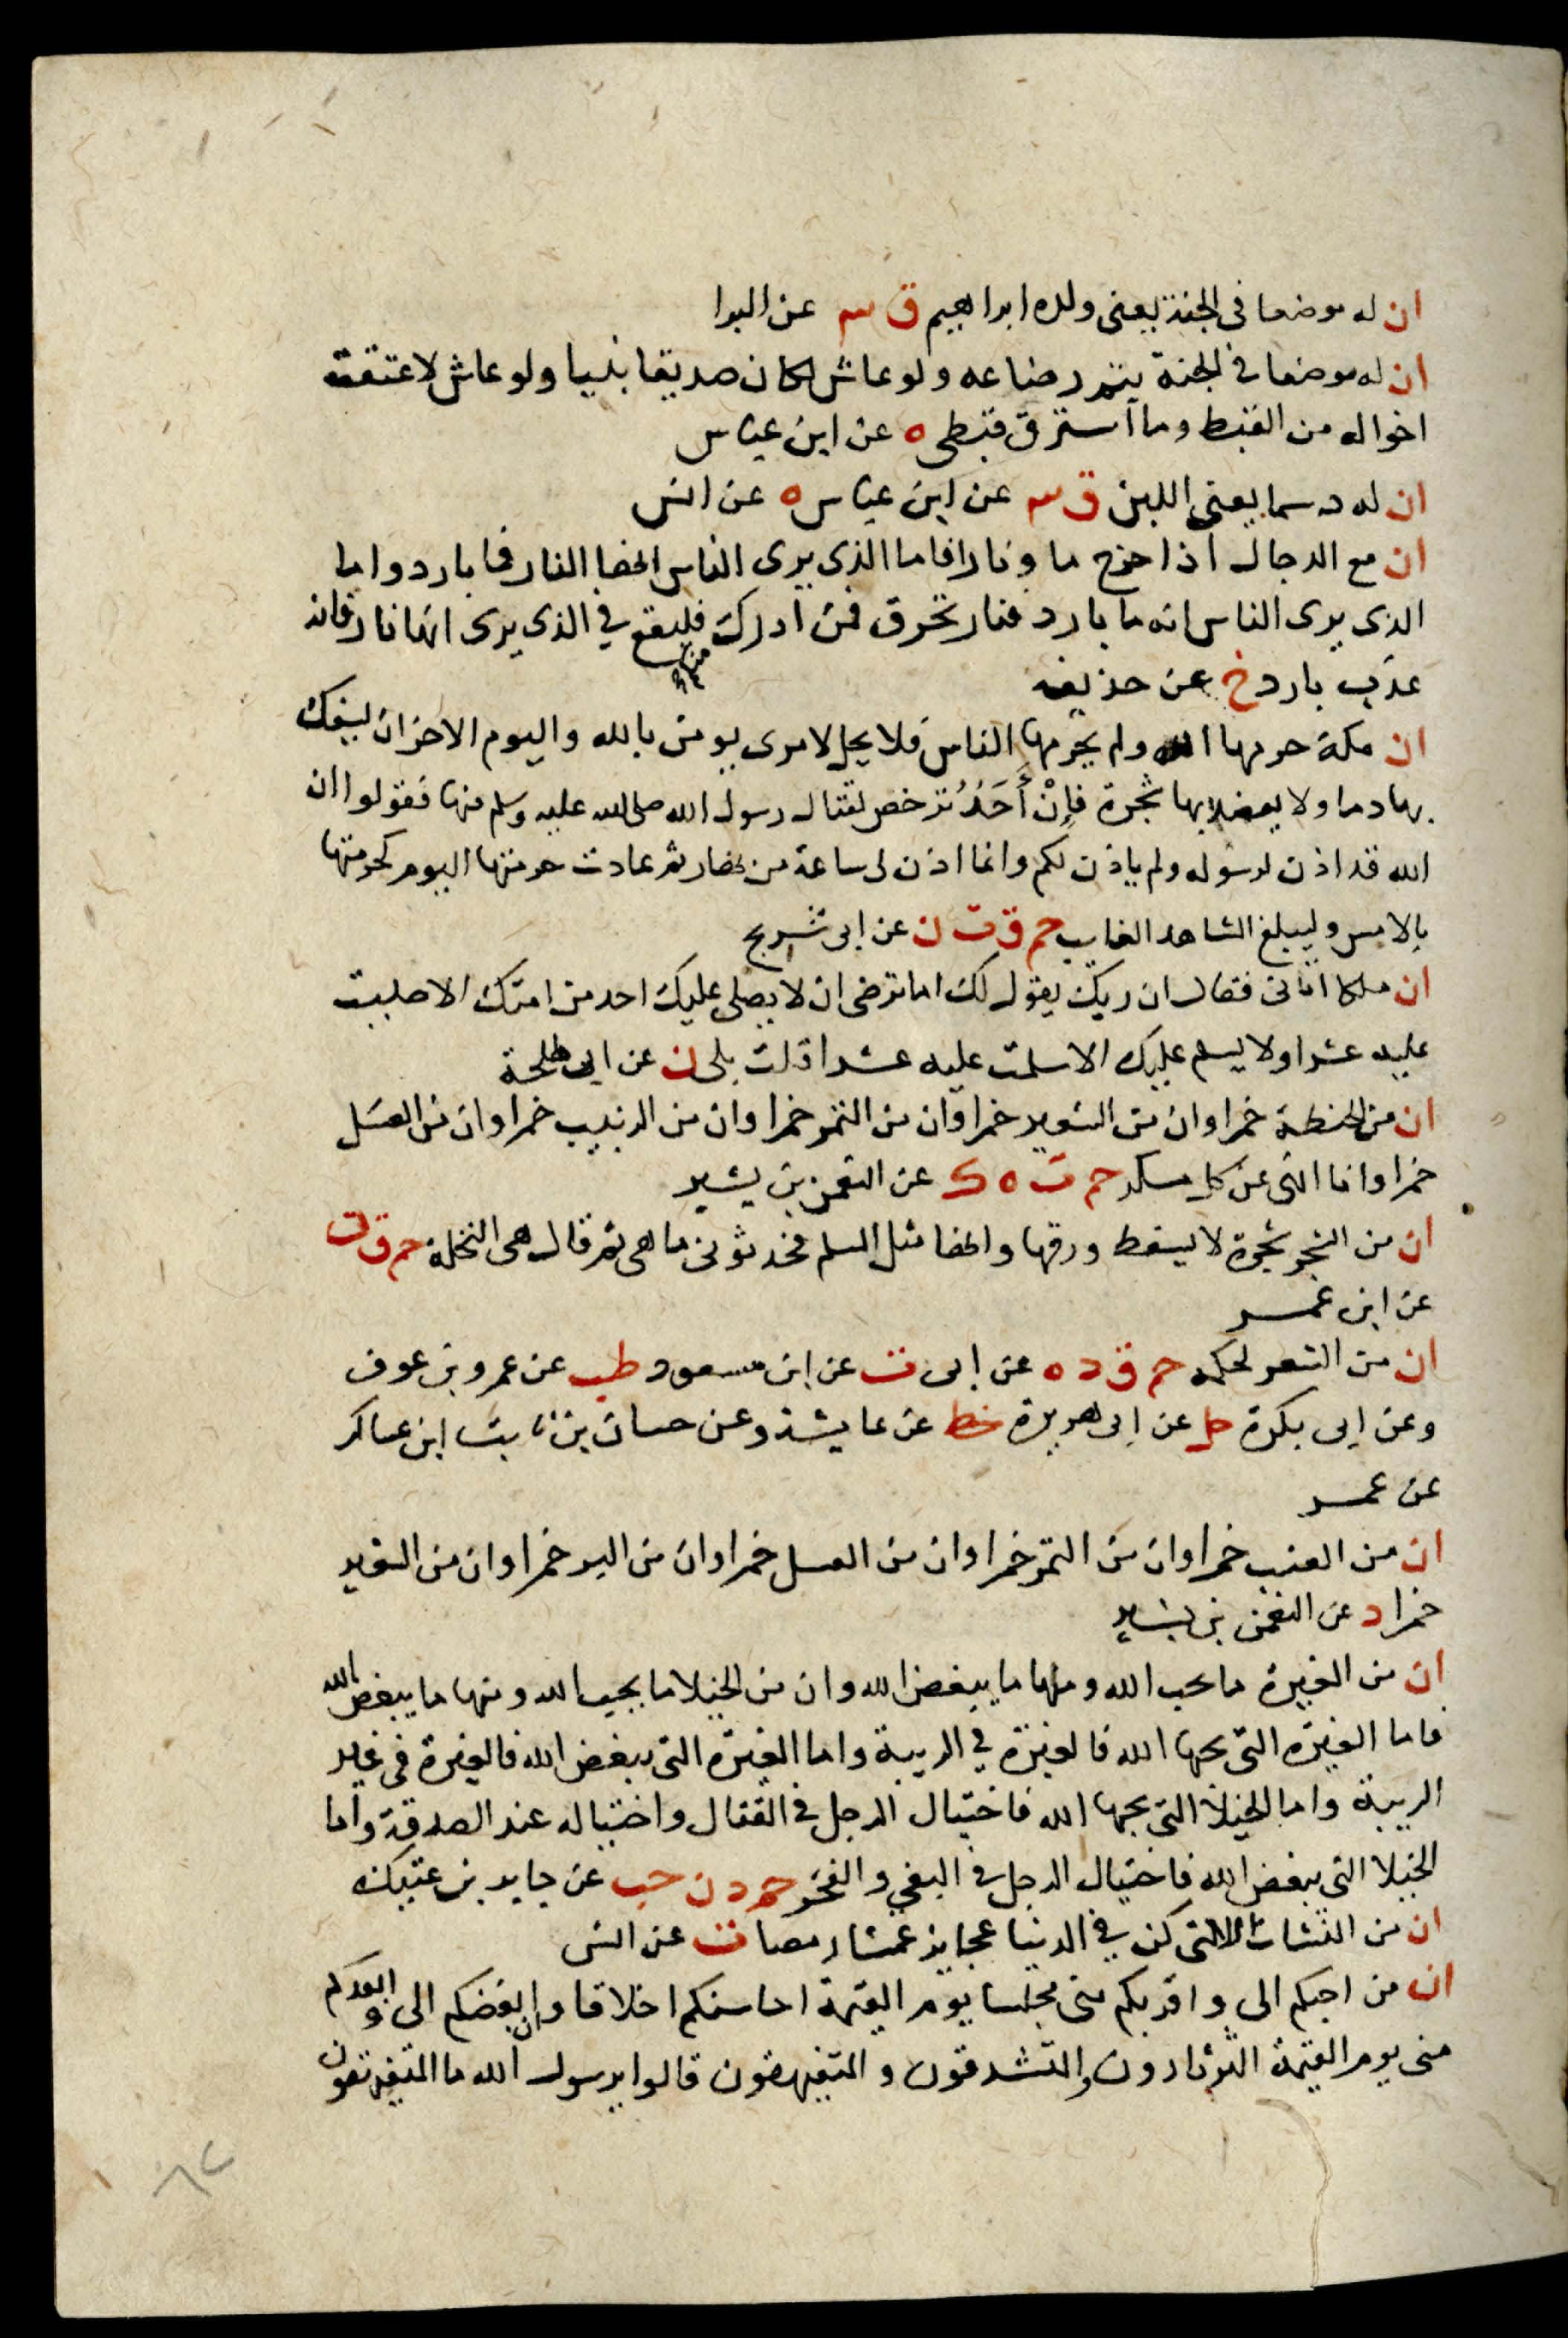 ان له موضعا فى الجنة يعنى ولده ابراهيم ق سم عن البرا
ان له موضعا في الجنة يتم رضاعه ولو عاش لكان صديقا نبيا ولو عاش لاعتقت
اخواله من القبط وما استرق قبطى ه عن ابن عباس
ان له دسما يعنى اللبن ق سم عن ابن عباس ه عن انس
ان مع الدجال اذا خرج ما ونارا فاما الذى يرى الناس انها النار فما بارد واما
الذى يرى الناس انه ما بارد فنار تحرق فمن ادرك منكم فليقع في الذى يرى انها نار فانه
عذب بارد خ عن حذيفه
ان مكة حرمها الله ولم يحرمها الناس فلا يحل لامرى يومن بالله واليوم الاخر ان يسفك
بها دما ولا يعضد بها شجرة فإن أحد ترخص لقتال رسول الله صلى الله عليه وسلم فيها فقولوا ان
الله قد اذن لرسوله ولم ياذن لكم وانما اذن لى ساعة من نهار ثم عادت حرمتها اليوم كحرمتها
بالامس وليبلغ الشاهد الغايب حم ق ت ن عن ابى شريح
ان ملكا اتانى فقال ان ربك يقول لك اما ترضى ان لا يصلى عليك احد من امتك الا صليت
عليه عشرا ولا يسلم عليك الا سلمت عليه عشرا قلت بلى ن عن ابى طلحة
ان من الحنطة خمرا وان من الشعير خمرا وان من التمر خمرا وان من الزبيب خمرا وان من العسل
خمرا وانا انهى عن كل مسكر حم ت ه ك عن النعمن بن بشير
ان من الشجر شجرة لا يسقط ورقها وانها مثل المسلم فحدثونى ما هى ثم قال هى النخلة حم ق ت
عن ابن عمر
ان من الشعر لحكمه حم ق د ه عن ابى ت عن ابن مسعود طب عن عمرو بن عوف
وعن ابى بكرة حل عن ابى هريرة خط عن عايشة وعن حسان بن ثابت ابن عساكر
عن عمر
ان من العنب خمرا وان من التمر خمرا وان من العسل خمرا وان من البر خمرا وان من الشعير
خمرا د عن النعمن بن بشير
ان من الغيرة ما يحب الله ومنها ما يبغض الله وان من الخيلا ما يحب الله ومنها ما يبغض الله
فاما الغيرة التى يحبها الله فالغيرة في الريبة واما الغيرة التى يبغض الله فالغيرة في غير
الريبة واما الخيلا التى يحبها الله فاختيال الرجل في القتال واختياله عند الصدقة واما
الخيلا التى يبغض الله فاختيال الرجل في البغي والفخر حم د ن حب عن جابر بن عتيك
ان من المنشات اللاتى كن في الدنيا عجايز عمشا رمصا ت عن انس
ان من احبكم الى واقربكم منى مجلسا يوم القيمة احاسنكم اخلاقا وان ابغضكم الى وابعدكم
منى يوم القيمة الثرثارون والمتشدقون والمتفيهقون قالوا يرسول الله ما المتفيهقون